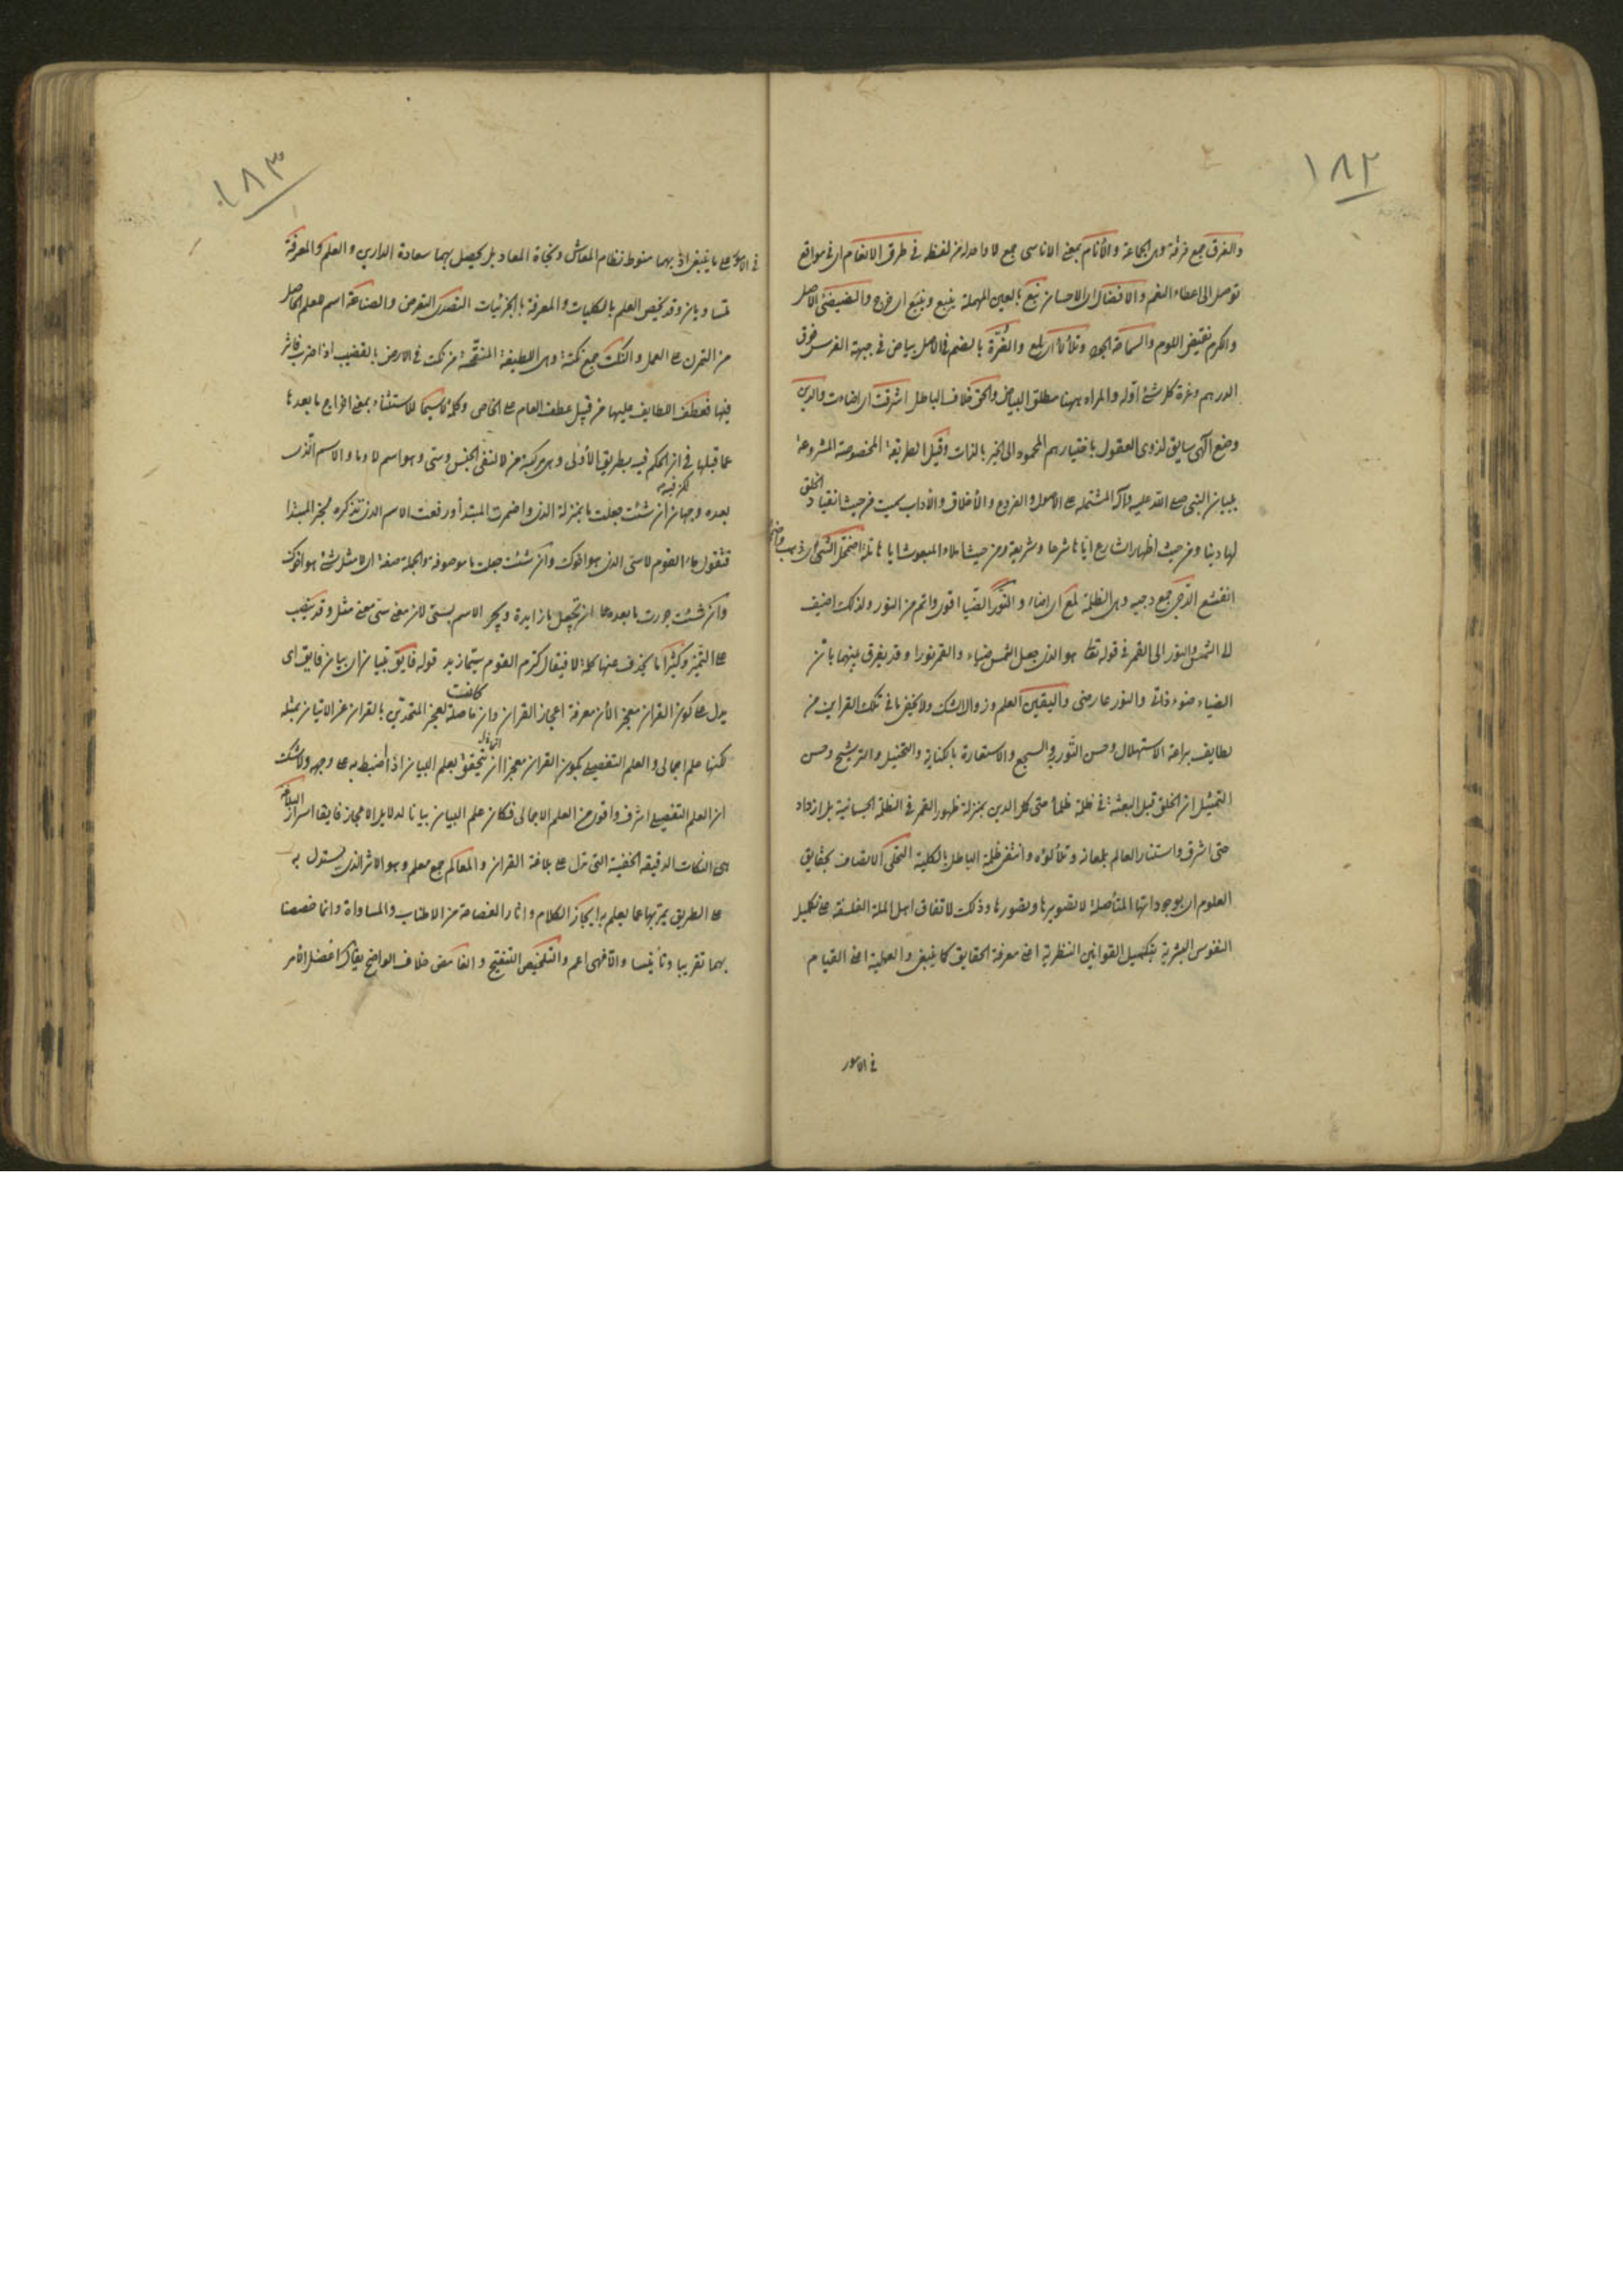 ١٨٢
والفرق جمع فرقة وهى الجماعة والأنام بمعنى الاناسى جمع لا واحد له من لفظه فى طرق الانعام اى فى مواقع
توصل الى اعطاء النعم والافضال اى الاحسان نبع بالعين المهملة ينبع وينبع اى خرج والضيضئ الاصل
والكرم نقيض اللوم والسماحة الجود وتلألأ اى لمع والغرة بالضم فى الاصل بياض فى جبهة الفرس فوق
الدرهم وغرة كل شئ اوله والمراد ههنا مطلق البياض والحق خلاف الباطل اشرقت اى اضاءت والدين
وضع الهى سايق لذوى العقول باختيارهم المحمود الى الخير بالذات وقيل الطريقة المخصوصة المشروعة
ببيان النبى صلى الله عليه وآله المشتملة على الاصول والفروع والأخلاق والآداب سميت من حيث انقياد الخلق
لها دينا ومن حيث اظهار الشارع اياها شرعا وشريعة ومن حيث املاء المبعوث اياها ملة اضمحل الشئ اى ذهب
انقشع الدجى جمع دجية وهى الظلمة لمع اى اضاء والنور الضياء اقوى واتم من النور ولذلك اضيف
الى الشمس والنور الى القمر فى قوله تعالى هو الذى جعل الشمس ضياء والقمر نورا وقد يفرق بينهما بان
الضياء ضوء ذاتى والنور عارضى واليقين العلم وزوال الشك ولا يخفى ما فى تلك القراين من
لطايف براعة الاستهلال وحسن التورية والسجع والاستعارة بالكناية والتخييل والترشيح وحسن
التمثيل ان الخلق قبل البعثة فى ظلمة ظلماء حتى كان الدين بمنزلة ظهور القمر فى الظلمة الجسمانية بل ازداد
حتى اشرق واستنار العالم بلمعانه وتلألؤه وانتفى ظلمة الباطل بالكلية التحلى الاتصاف بحقايق
العلوم اى بوجوداتها المتأصلة لا تصويرها وتصورها وذلك لاتفاق اهل الملة الفلسفة على تكميل
النفوس البشرية بتكميل القوانين النظرية اعنى معرفة الحقايق كما ينبغى والعملية اعنى القيام
فى الامور
١٨٣
فى الامور على ما ينبغى اذ بهما منوط نظام المعاش ونجاة المعاد بل يحصل بهما سعادة الدارين والعلم والمعرفة
متساويان وقد يخص العلم بالكليات والمعرفة بالجزئيات التصدى التعرض والصناعة اسم للعلم الحاصل
من التمرن على العمل والنكت جمع نكتة وهى اللطيفة المنقحة من نكت فى الارض بالقضيب اذا ضرب فاثر
فيها فعطف اللطايف عليها من قبيل عطف العام على الخاص وكلمة لاسيما للاستثناء بمعنى اخراج ما بعدها
عما قبلها فى ان الحكم فيه بطريق الأولى وهى مركبة من لا لنفى الجنس وسى وهو اسم لا وما والاسم الذى
بعده وجهان ان شئت جعلت ما بمنزلة الذى واضمرت المبتدأ ورفعت الاسم الذى تذكره لخبر المبتدا
فتقول جاء القوم لاسى الذى هو اخوك وان شئت جعلت ما موصوفة والجملة صفة اى لا مثل شئ هو اخوك
وان شئت جررت ما بعده على ان تجعل ما زايدة ويجر الاسم بسى لان معنى سى معنى مثل وقد ينصب
على التميز وكثيرا ما يحذف عنها كلمة لا فيقال كرم القوم سيما زيد قوله فايق تبيان اى بيان فايق اى
يدل على كون القران معجزا لأن معرفة اعجاز القران وان كانت حاصلة لعجز المتحدين بالقران عن الاتيان بمثله
لكنها علم اجمالى والعلم التفصيلى بكون القران معجزا انما يتحقق بعلم البيان اذا ضبط به على وجهه ولا شك
ان العلم التفصيلى اشرف واقوى من العلم الاجمالى فكان علم البيان بيانا لدلايل الاعجاز فايقا اسرار البلاغة
هى النكات الدقيقة الخفية التى تدل على بلاغة القران والمعالم جمع معلم وهو الاثر الذى يستدل به
على الطريق يمر بها عما يعلم به ايجاز الكلام واثار الفصاحة من الاطناب والمساواة وانما خصصنا
بهما تقريبا وتأنيسا والا فهى اعم والتلخيص التنقيح والغامض خلاف الواضح يقال افضل الامر